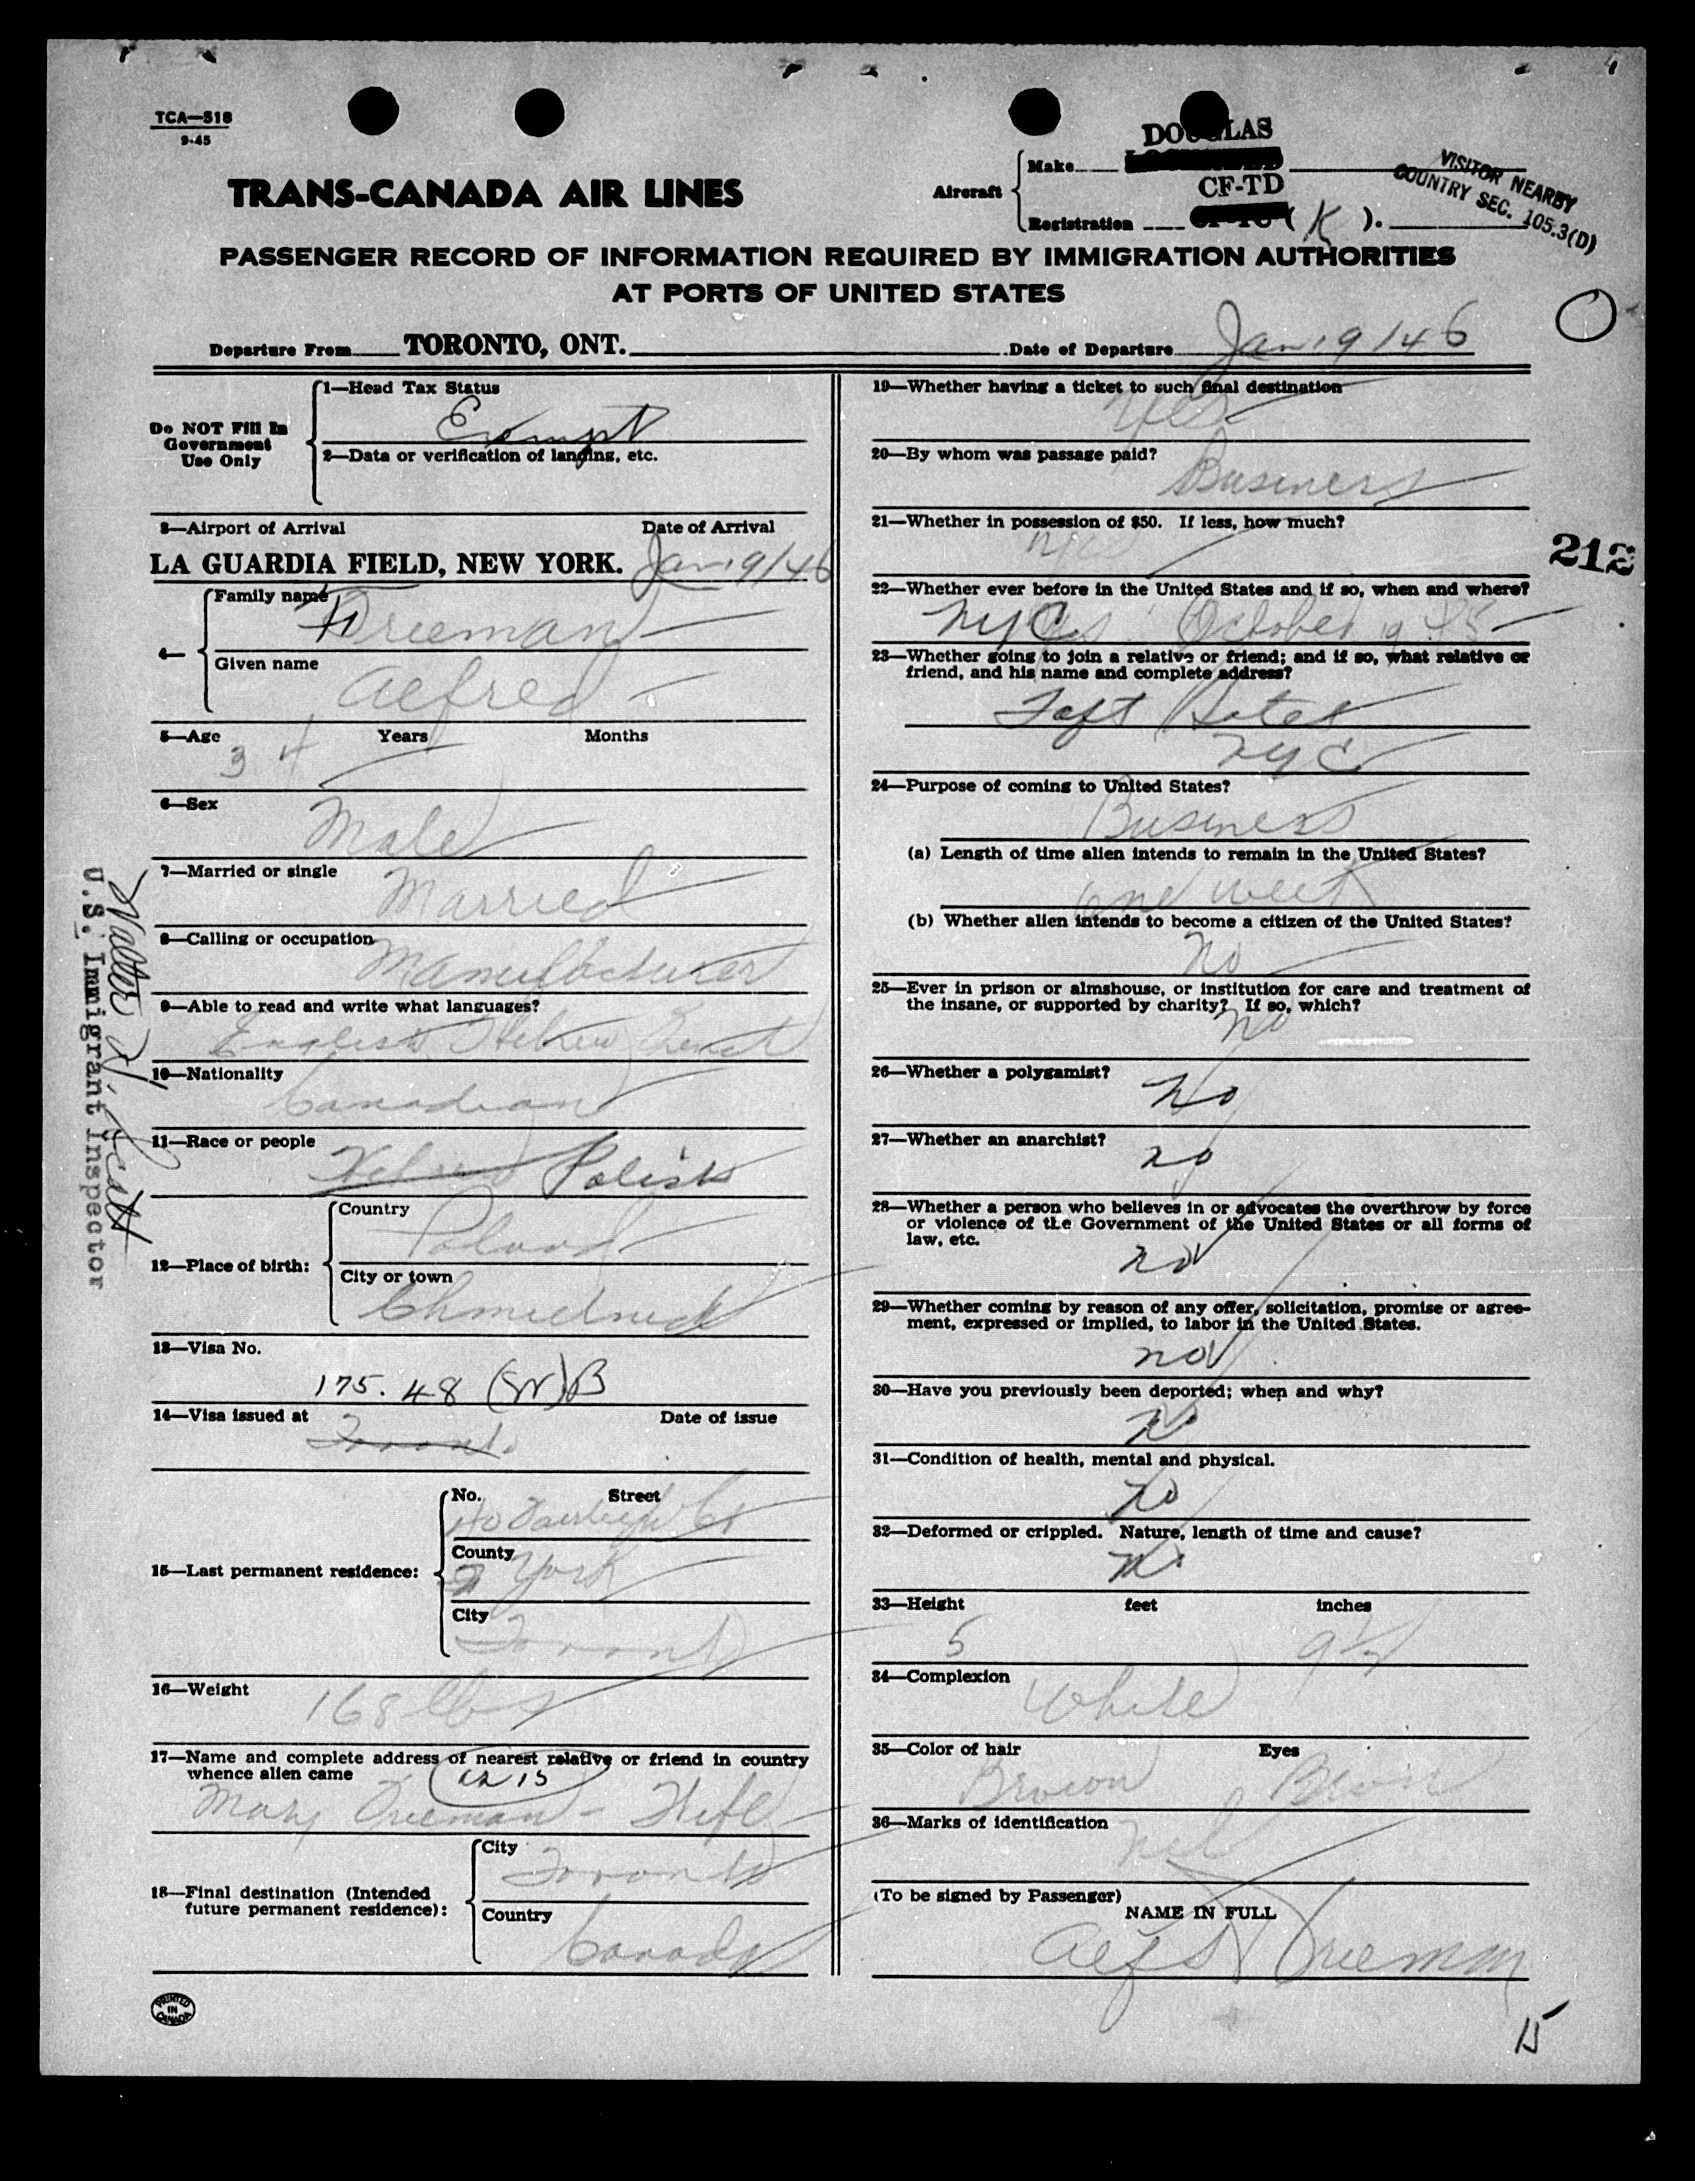 TCA—518
9-45
DOUGLAS
Aircraft
Make
CF-TD
Registration (K).
VISITOR NEARBY
COUNTRY SEC. 105.3(D)
TRANS-CANADA AIR LINES
PASSENGER RECORD OF INFORMATION REQUIRED BY IMMIGRATION AUTHORITIES
AT PORTS OF UNITED STATES
Departure From TORONTO, ONT. Date of Departure Jan 19/46
Do NOT Fill In
Government
Use Only
1—Head Tax Status
Exempt
2—Data or verification of landing, etc.
3—Airport of Arrival Date of Arrival
LA GUARDIA FIELD, NEW YORK. Jan 19/46
4—
Family name
Given name
Alfred
5—Age Years Months
34
6—Sex
Male
7—Married or single
Married
8—Calling or occupation
Manufacturer
9—Able to read and write what languages?
English Hebrew French
10—Nationality
Canadian
11—Race or people
Hebrew Polish
12—Place of birth:
Country
Poland
City or town
13—Visa No.
175.48 (W)B
14—Visa issued at Date of issue
Toronto
15—Last permanent residence:
No. Street
County
York
City
Toronto
16—Weight
168 lbs
17—Name and complete address of nearest relative or friend in country
whence alien came
Mary - Wife
18—Final destination (Intended
future permanent residence):
City
Toronto
Country
Canada
PRINTED
IN
CANADA
19—Whether having a ticket to such final destination
Yes
20—By whom was passage paid?
Business
21—Whether in possession of $50. If less, how much?
Yes
22—Whether ever before in the United States and if so, when and where?
NYC October 1945
23—Whether going to join a relative or friend; and if so, what relative or
friend, and his name and complete address?
Taft Hotel
NYC
24—Purpose of coming to United States?
Business
(a) Length of time alien intends to remain in the United States?
one week
(b) Whether alien intends to become a citizen of the United States?
No
25—Ever in prison or almshouse, or institution for care and treatment of
the insane, or supported by charity? If so, which?
No
26—Whether a polygamist?
No
27—Whether an anarchist?
no
28—Whether a person who believes in or advocates the overthrow by force
or violence of the Government of the United States or all forms of
law, etc.
no
29—Whether coming by reason of any offer, solicitation, promise or agree-
ment, expressed or implied, to labor in the United States.
no
30—Have you previously been deported; when and why?
No
31—Condition of health, mental and physical.
32—Deformed or crippled. Nature, length of time and cause?
No
33—Height feet inches
5 9½
34—Complexion
White
35—Color of hair Eyes
Brown Brown
36—Marks of identification
nil
(To be signed by Passenger)
NAME IN FULL
212
15
U.S. Immigrant Inspector